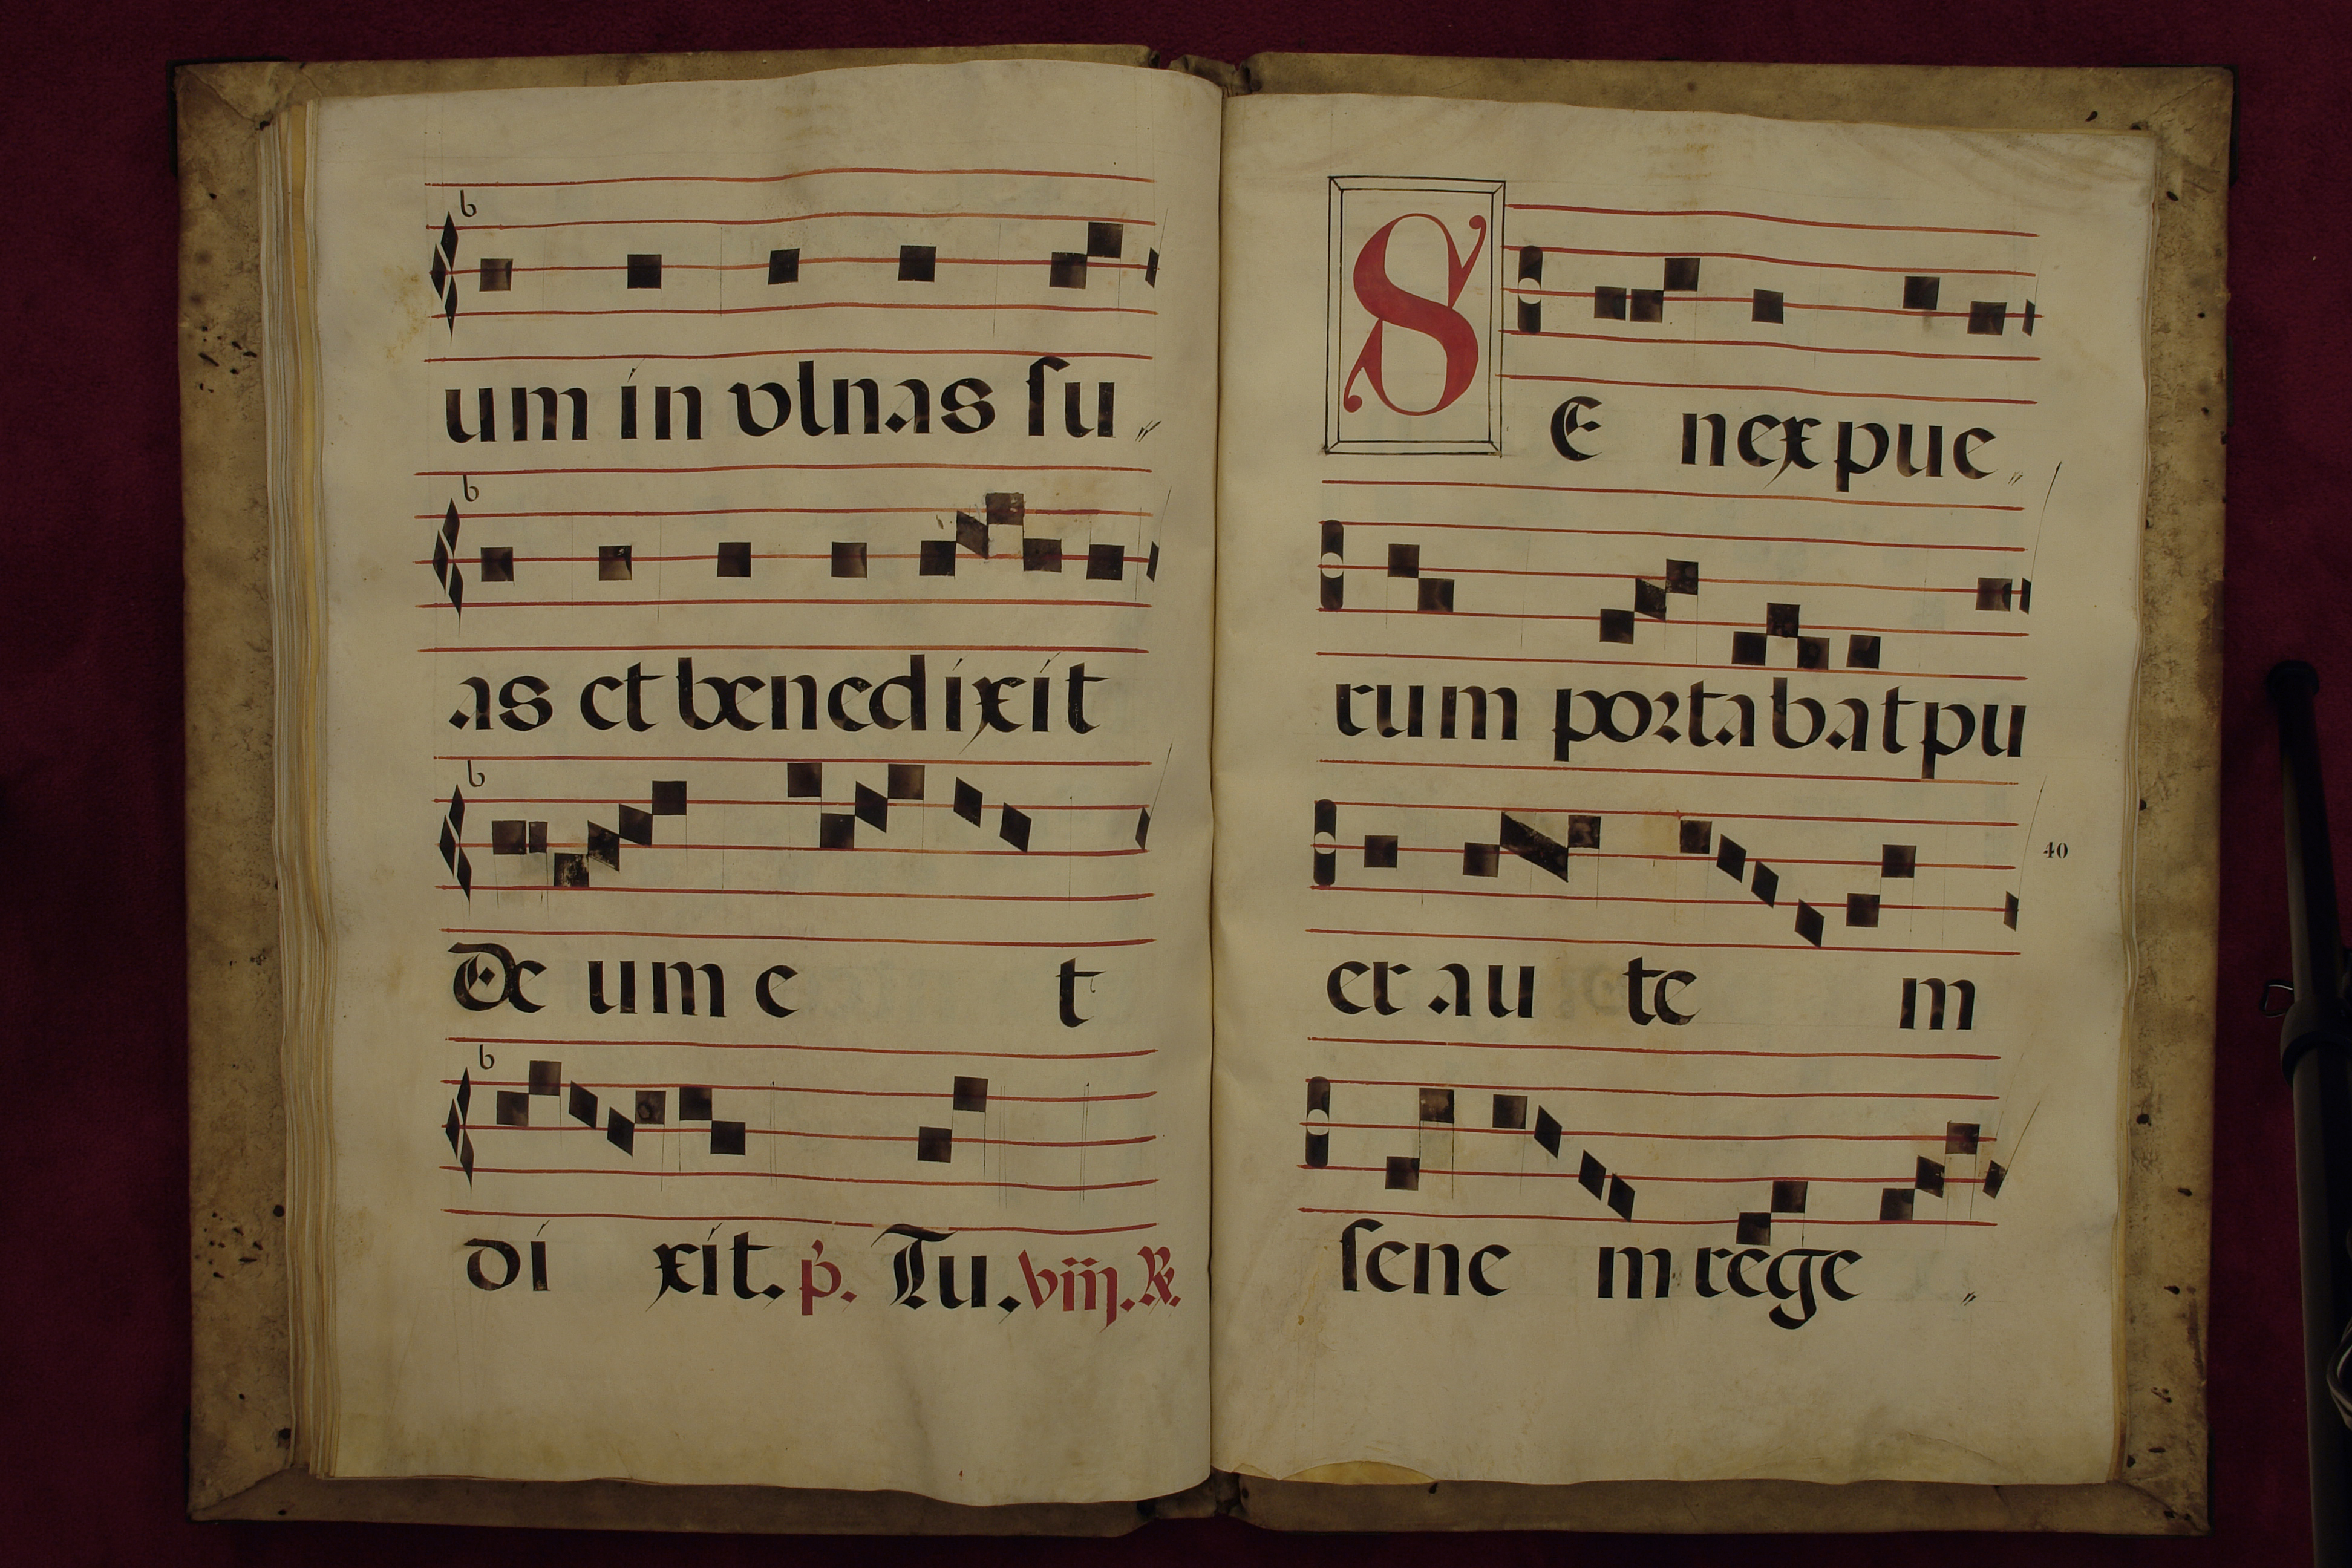 um in vlnas su〃
as et benedixit
De um e t
di xit. p̄. Tu. viij. ℟.
S E nex pue〃
rum portabat pu
er au te m
40
sene m rege〃